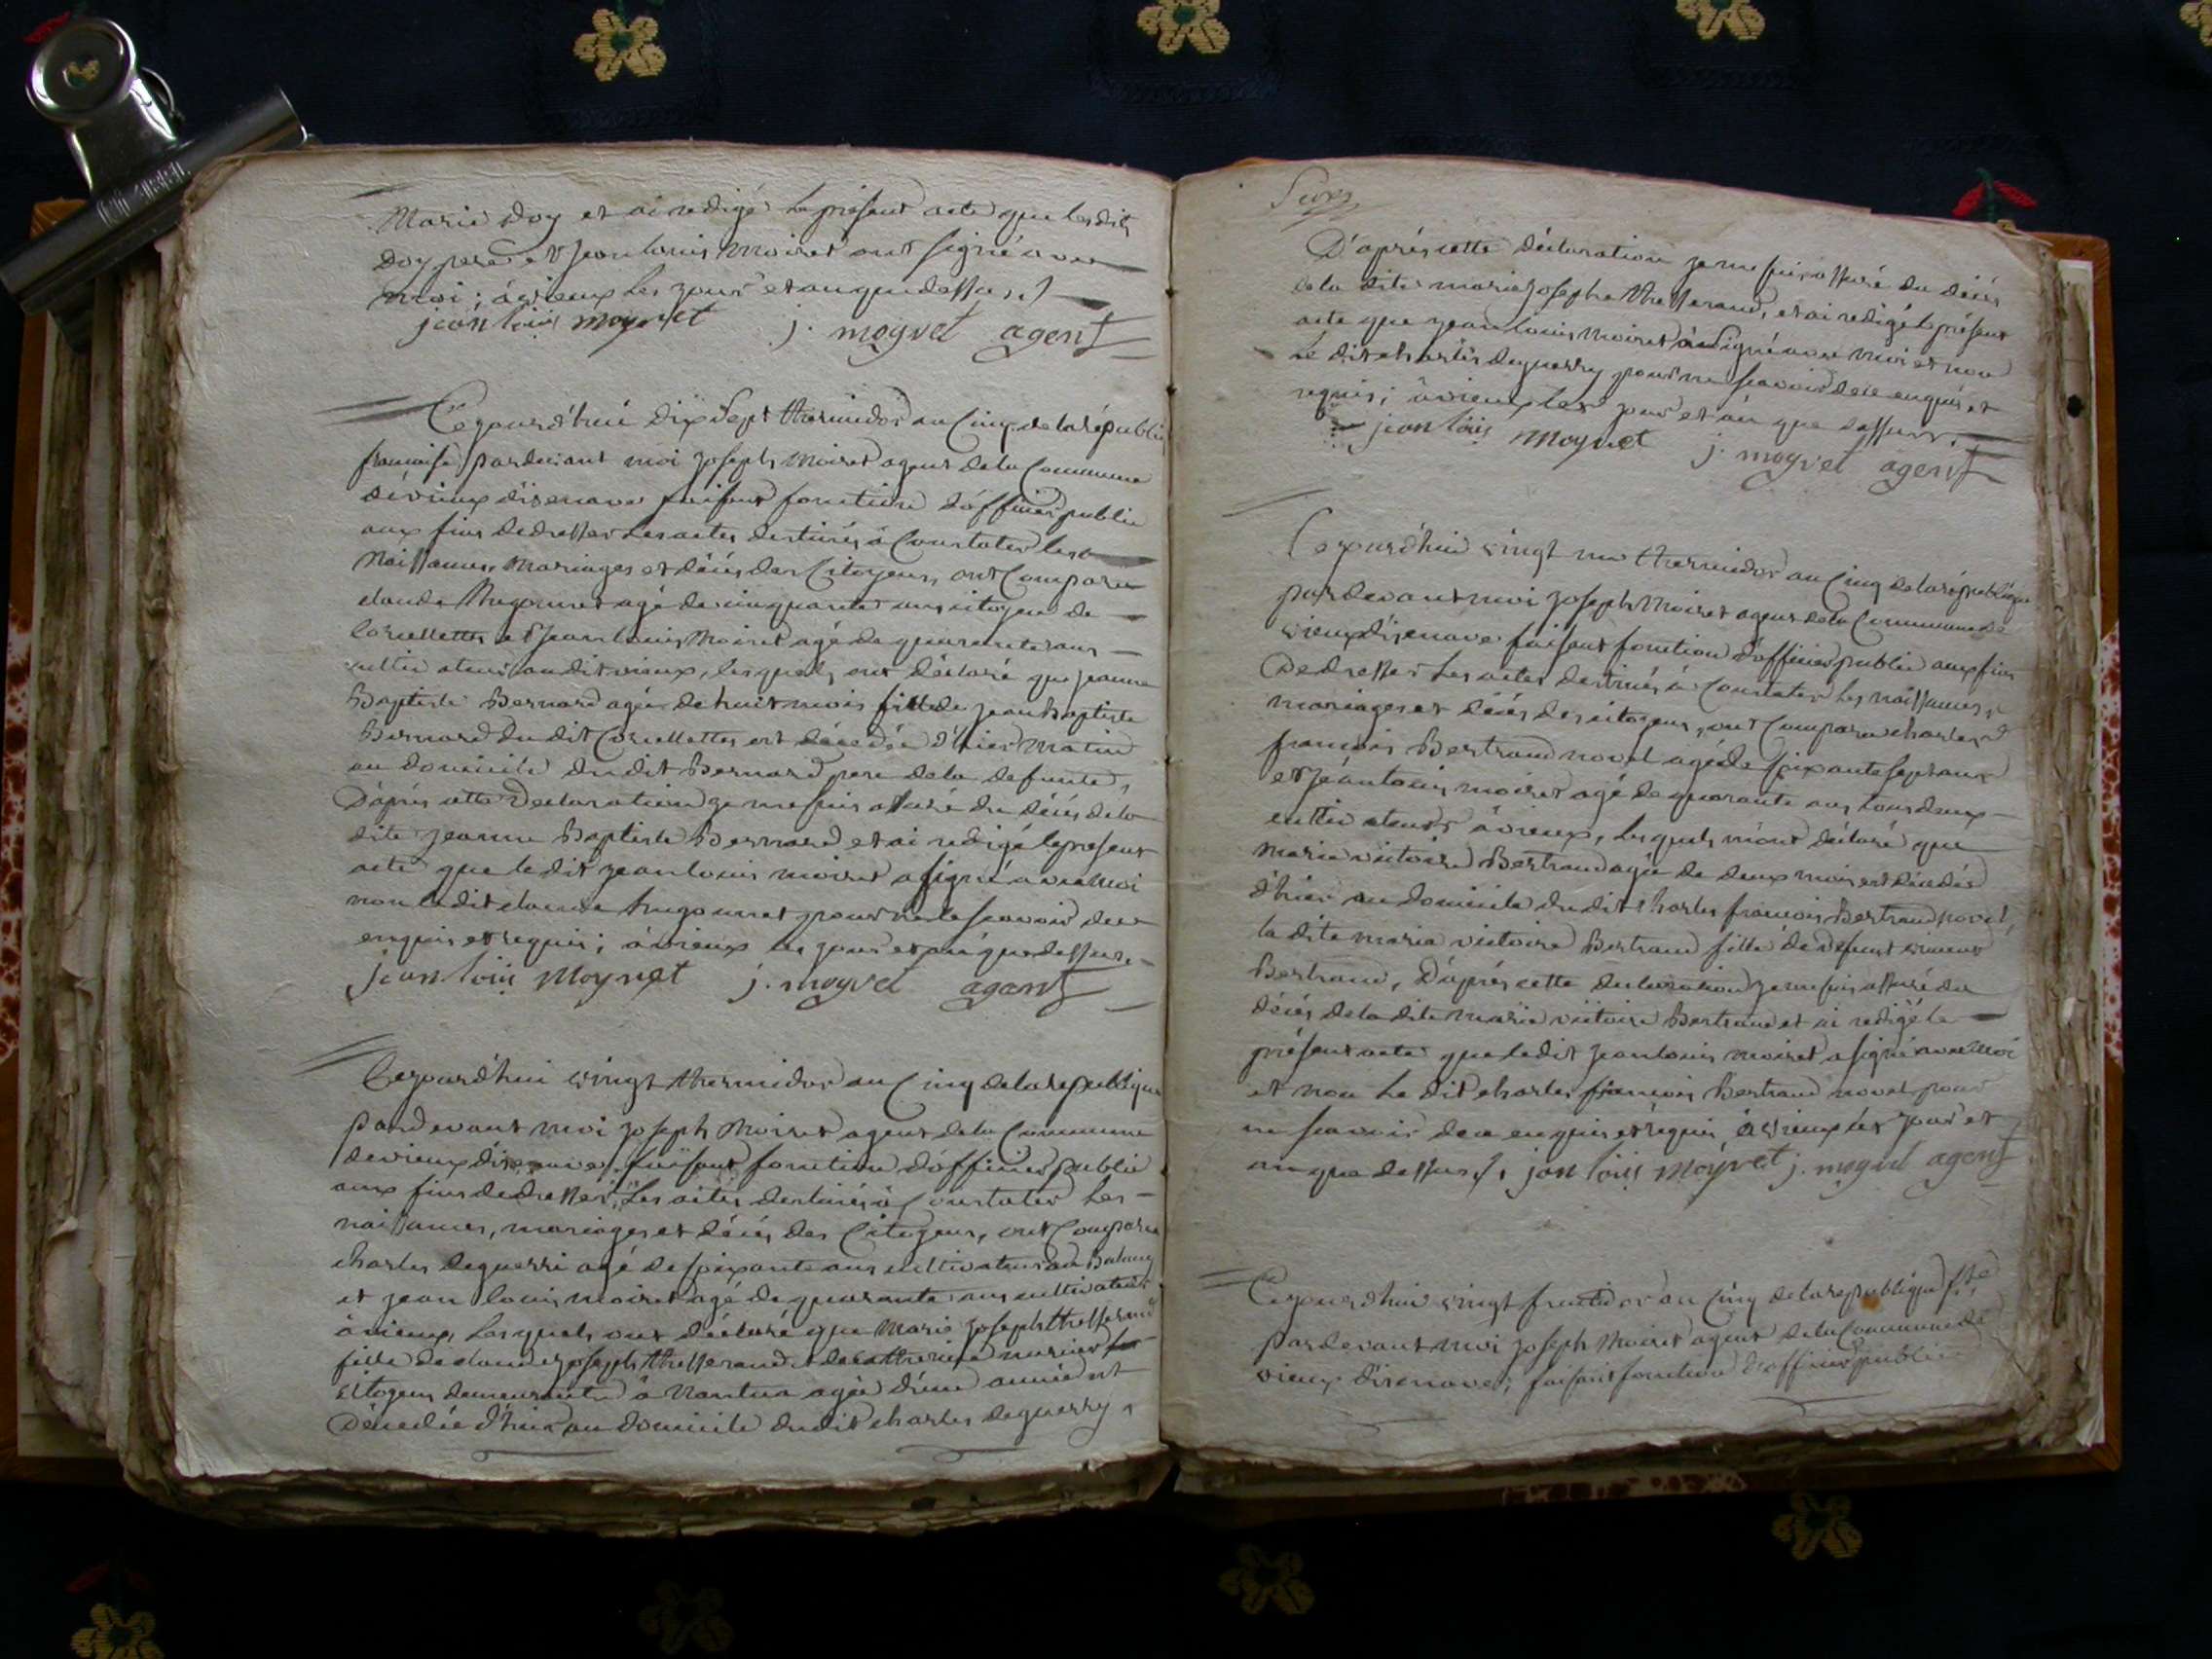 Marie Doy et ai redigé le présent acte que lesdits
Doy pere et Jean louis Moiret ont signé avec
moi; à vieux les jour et an que dessus./.
jean loüis moyret j. moyret agent
Cejourd'hui dix sept thermidor an Cinq de la républiq
francaise pardevant moi Joseph Moiret agent de la Commune
de vieux d'izenave faisant fonction d'officier public
aux fins de dresser les actes destinés à Constater les
Naissances, Mariages et décés des Citoyens, ont Comparu
claude hugonnet agé de cinquante ans citoyen de
Corcellettes et Jean louis Moiret agé de quarante ans
cultivateur audit vieux, lesquels ont déclaré que jeanne
Baptiste Bernard agée de huit mois fille de jean Baptiste
Bernard du dit Corcellettes est décédée d'hier matin
au domicile du dit Bernard pere de la defunte,
D'après cette Declaration je me suis assuré du décés de la
dite jeanne Baptiste Bernard et ai redigé le present
acte que le dit jean louis moiret a signé avec moi
non le dit claude hugonnet pour ne le scavoir de ce
enquis et requis; à vieux les jour et an que dessus.
jean loüis Moyret j. moyret agent
Cejourd'hui vingt thermidor an Cinq de la republique
pardevant moi joseph Moiret agent de la Commune
de vieux d'izenave, faisant fonction d'officier public
aux fins de dresser les actes destinés à Constater les
naissances, mariages et décés des Citoyens, ont Comparu
charles deguerri agé de soixante ans cultivateur au Balmay
et jean louis moiret agé de quarante ans cultivateur
à vieux, lesquels ont déclaré que Marie Joseph thesserand
fille de claude joseph thesserand et de catherine
Citoyens demeurants à Nantua agée d'une année est
Décedée d'hier au domicile dudit charles deguerry,
D'aprés cette déclaration je me suis assuré du décés
de la dite marie josephe thesserand, et ai redigé le présent
acte que jean louis moiret à signé avec moi et non
le dit charles deguerry pour ne scavoir de ce enquis et
requis; à vieux les jour et an que dessus.
jean loüis Moyret j. moyret agent
Cejourd'hui vingt un thermidor an Cinq de la république
pardevant moi joseph Moiret agent de la Commune de
vieux d'izenave faisant fonction d'officier public aux fins
de dresser les actes destinés à Constater les naissances,
mariages et décés des citoyens, ont Comparu charles
francois Bertrand novel agé de soixante sept ans
et Jean louis moiret agé de quarante ans tous deux
cultivateurs à vieux, lesquels m'ont déclaré que
marie victoire Bertrand agée de deux mois est décedée
d'hier au domicile du dit charles francois Bertrand novel,
la dite marie victoire Bertrand fille de defunt
Bertrand, D'aprés cette declaration je me suis assuré du
décés de la dite marie victoire Bertrand et ai redigé le
présent acte que ledit jean louis moiret a signé avec moi
et non le dit charles francois Bertrand novel pour
ne scavoir de ce enquis et requis, à vieux les jour et
an que dessus./. jean loüis Moyret j. moyret agent
Cejourd'hui vingt fructidor an Cinq de la republique
pardevant moi joseph Moiret agent de la Commune de
vieux d'izenave, faisant fonction d'officier public